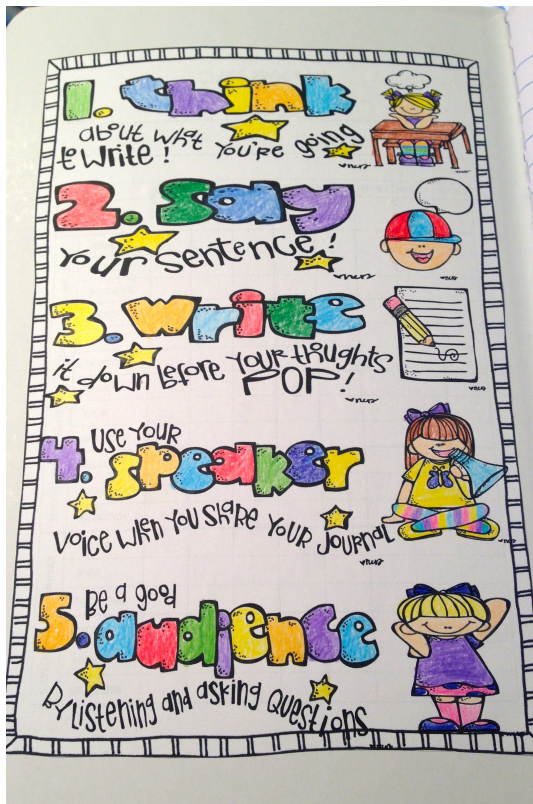 1. think
about what you're going
to write!
2. Say
your sentence!
3. write
it down before your thughts
POP!
4. Use your
speaker
voice when you share your journal
5. Be a good
audience
By listening and asking questions